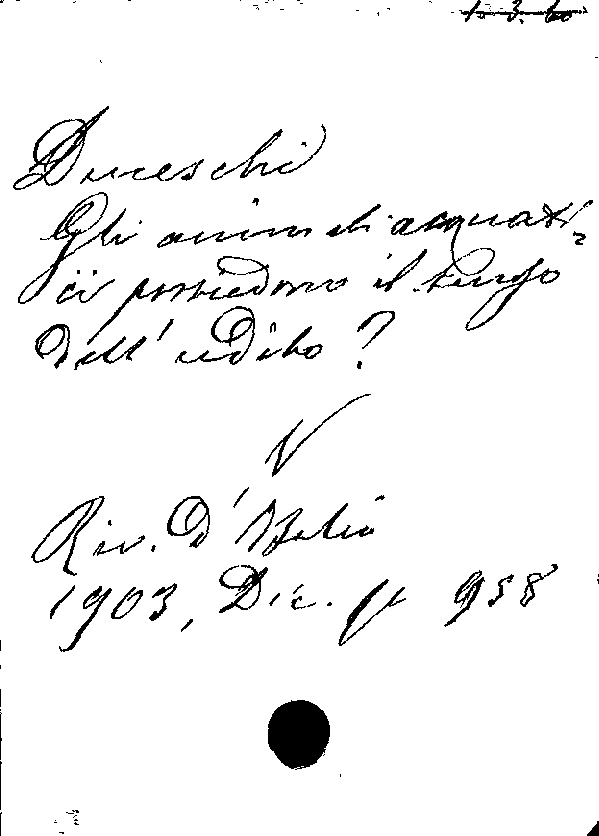 1. 3. 60
Duceschi
Gli animali acquati-
ci possiedono il senso
dell'udito?
V
Riv. d'Italia
1903, Dic. p 958